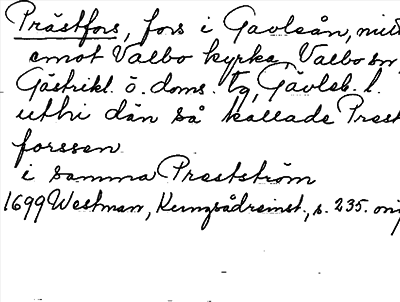 Prästfors, fors i Gavleån, mitt
emot Valbo kyrka, Valbo sn
Gästrikl. ö. doms. tg, Gävleb. l.
uthi dän så kallade Prest
forssen
i samma Prestström
1699 Westman, 235. orig